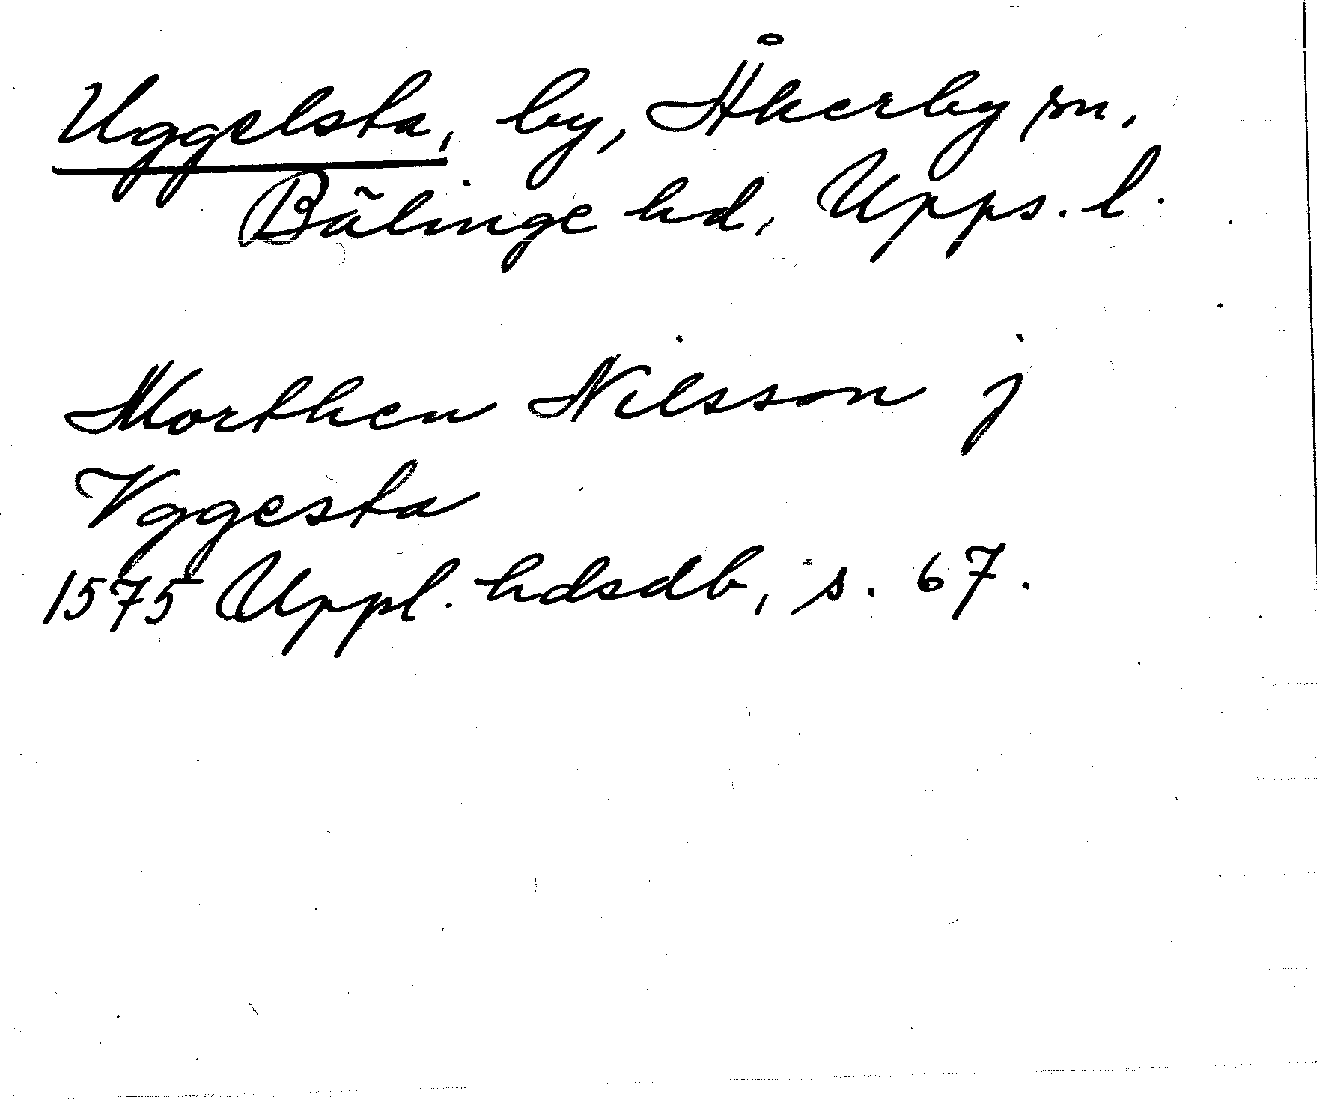 Uggelsta, by, Åkerby sn,
Bälinge hd, Upps. l.
Morthen Nilsson j
Vggesta
1575 Uppl. hdsdb, s. 67.